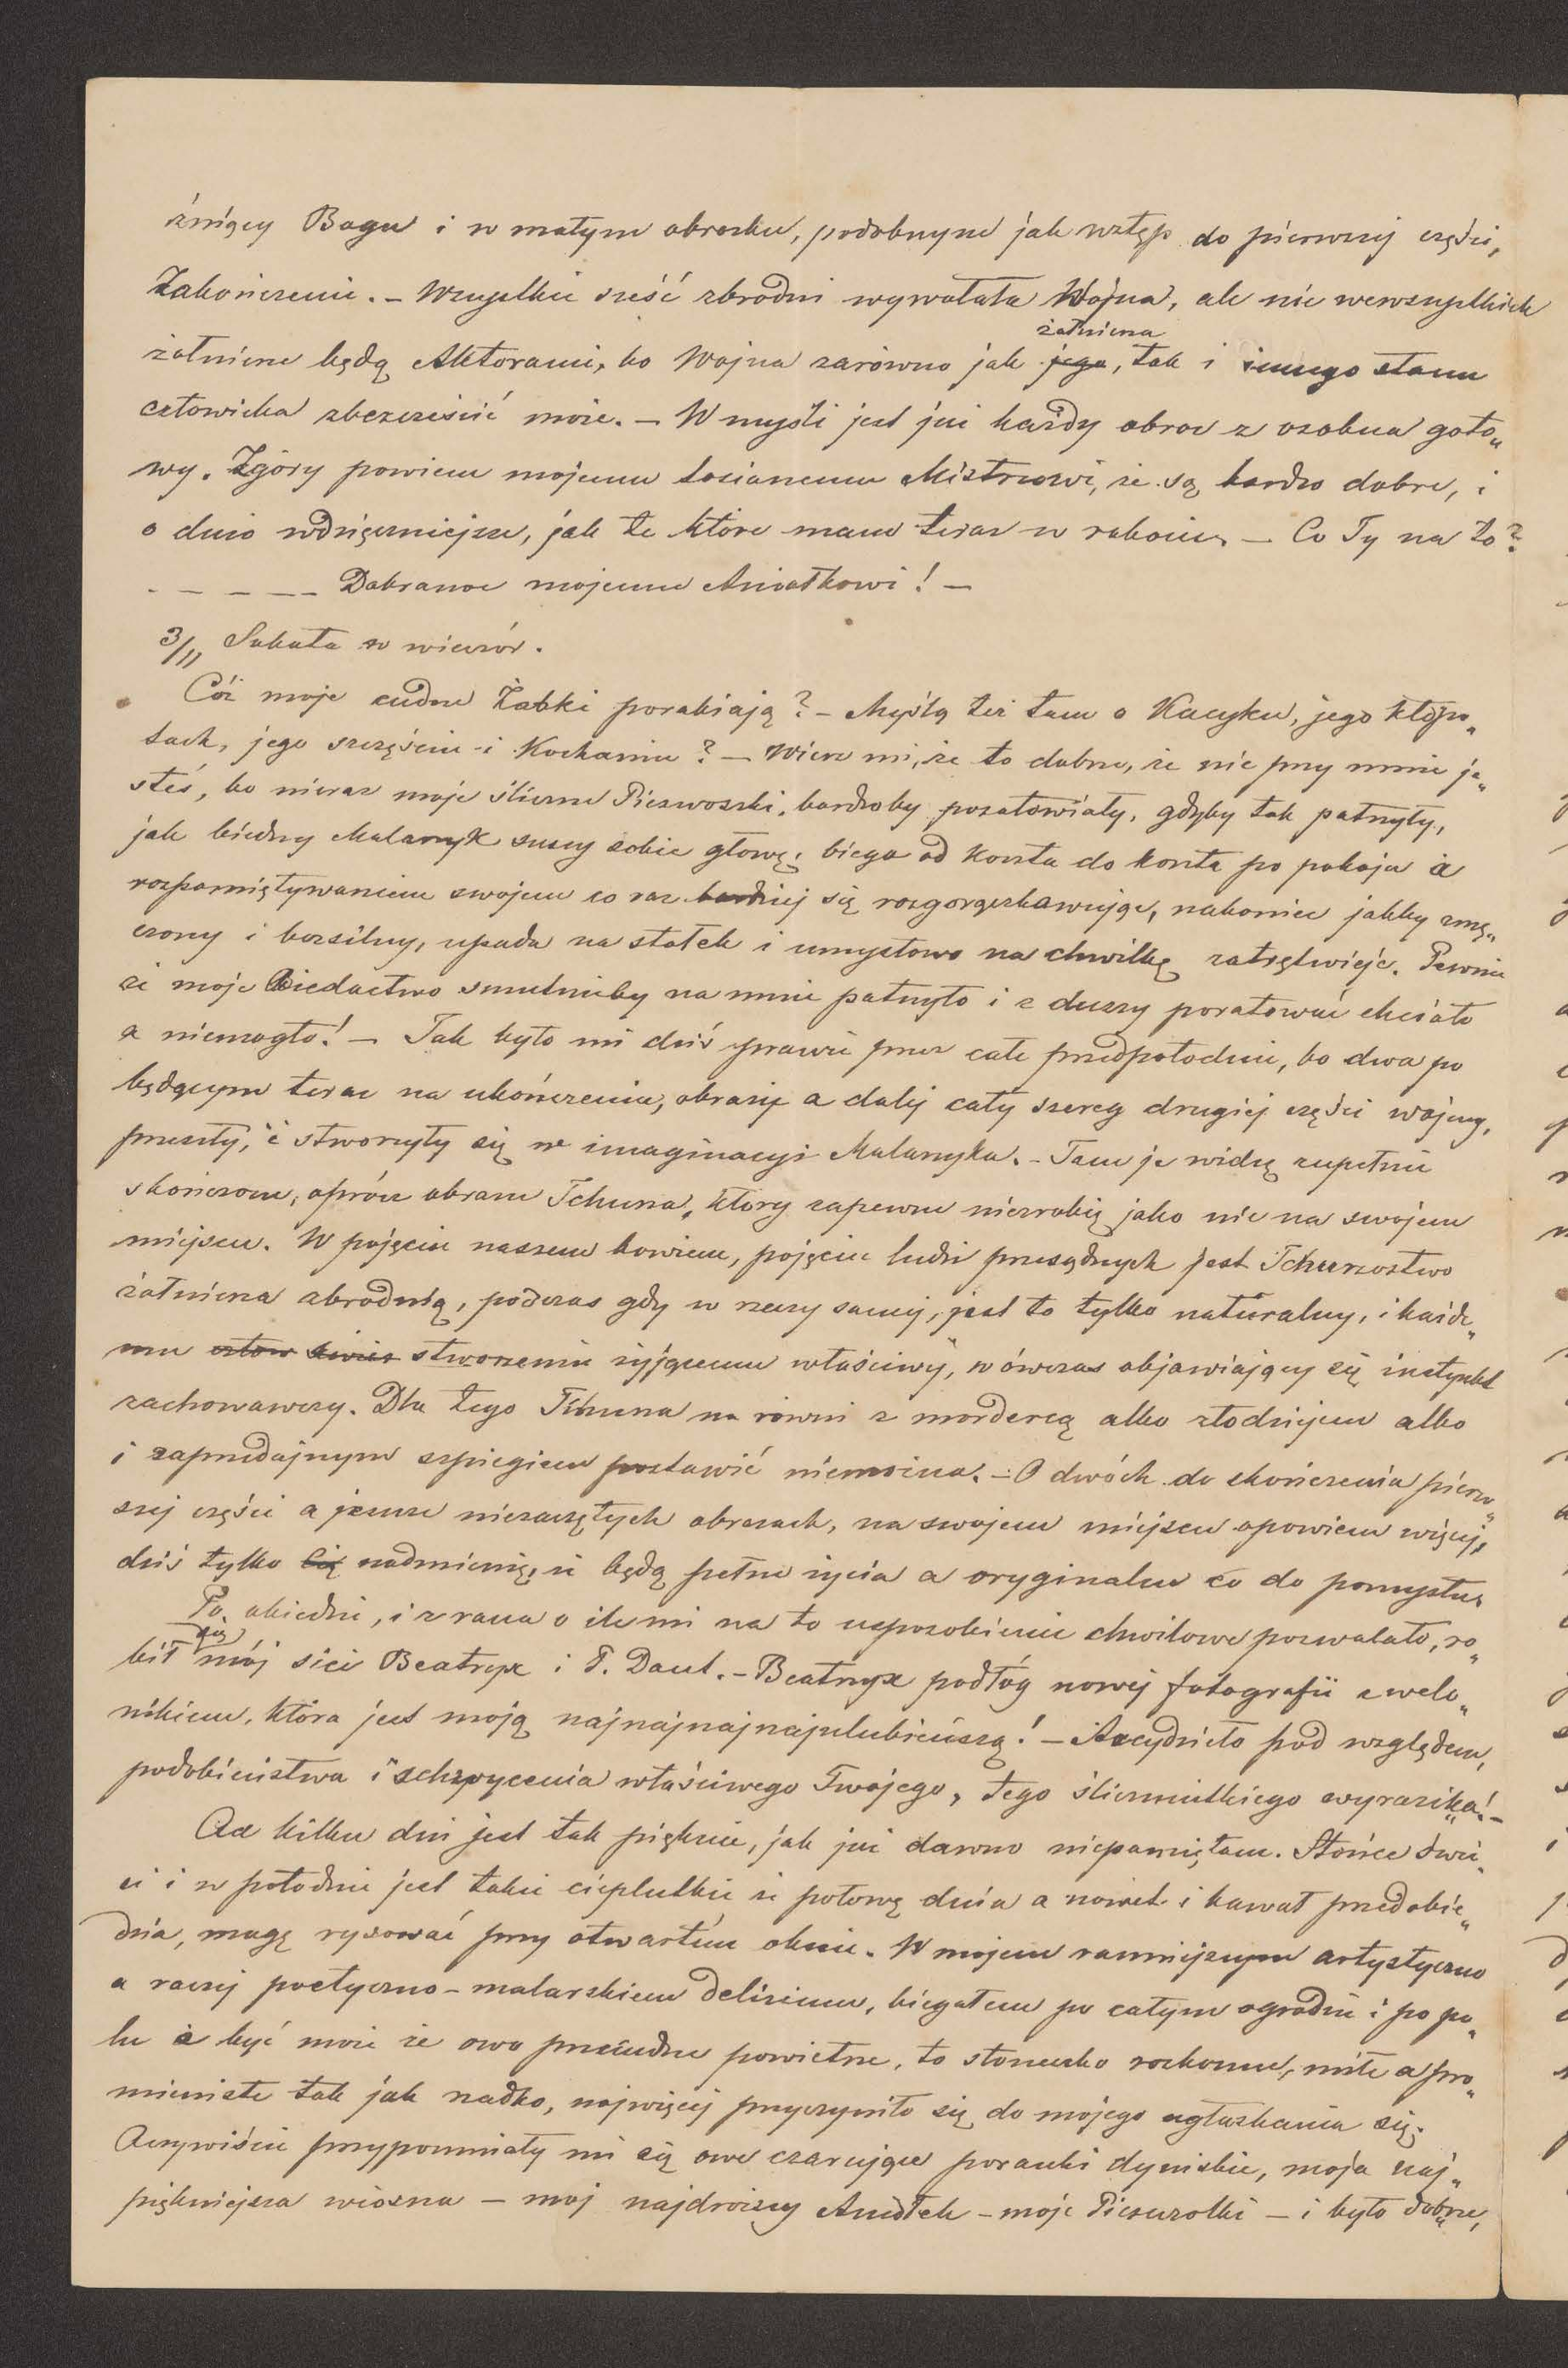 źniący Bogu i w małym obrazku, podobnym jak wstęp do pierwszej części,
Zakończenie. – Wszystkie sześć zbrodni wywołała Wojna, ale nie wewszystkich
żołnierze będą Aktorami, bo Wojna zarówno jak jego, żołnierza tak i innego stanu
człowieka zbezcześcić może. – W myśli jest już każdy obraz z osobna goto„
wy. Zgóry powiem mojemu kosianemu Mistrzowi, że są bardzo dobre, i
o dużo wdzięczniejsze, jak te które mam teraz w robocie. – Co Ty na to?
- – – – – Dobranoc mojemu Aniołkowi! –
3/11 Sobota w wieczór.
Cóż moje cudne Żabki porabiają? – Myślą też tam o Kacyku, jego kłopo„
tach, jego szczęściu i Kochaniu? – Wierz mi, że to dobrze, że nie przy mnie je„
steś, bo nieraz moje śliczne Pieswoszki, bardzoby pożałowiały, gdyby tak patrzyły,
jak biedny Malarzyk suszy sobie głowę, biega od konta do konta po pokoju i
rozpamiętywaniem swojem co raz bardziej się rozgorączkowując, nakoniec jakby zmę„
czony i bezsilny, upada na stołek i umysłowo na chwilkę zatrętwieje. Pewnie
że moje Biedactwo smutnieby na mnie patrzyło i z duszy poratować chciało
a niemogło! – Tak było mi dziś prawie przez całe przedpołodnie, bo dwa po
będącym teraz na ukończeniu, obrazy a dalej cały szereg drugiej części wojny,
przeszły, i stworzyły się w imaginacyi Malarzyka. – Tam je widzę zupełnie
skończone, oprócz obrazu Tchurza, który zapewne niezrobię jako nie na swojem
miejscu. W pojęciu naszem bowiem, pojęciu ludzi przesądnych jest Tchurzostwo
żołnierza zbrodnią, podczas gdy w rzeczy samej, jest to tylko naturalny, i każde„
mu człow stworzeniu żyjącemu właściwy, w ówczas objawiający się instynkt
zachowawczy. Dla tego Tchurza na równi z mordercą albo złodziejem albo
i zaprzedajnym szpiegiem postawić niemożna. – O dwóch do skończenia pierw„
szej części a jeszcze niezaczętych obrazach, na swojem miejscu opowiem więcej,
dziś tylko Cię nadmienię, że będą pełne życia a oryginalne co do pomysłu.
Po obiedzie, i z rana o ile mi na to usposobienie chwilowe pozwalało, ro„
bił mój sieć Beatryx i T. Daul. – Beatryx podłóg nowej fotografii z welo„
nikiem, która jest moją najnajnajnajulubieńszą! – Arcydzieło pod względem,
podobieństwa i schwycenia właściwego Twojego, tego śliczniutkiego wyrazika! –
Od kilku dni jest tak pięknie, jak już dawno niepamiętam. Słońce świe„
ci i w połodnie jest takie cieplutkie że połowę dnia a nawet i kawał przedobie„
dnia, mogę rysować przy otwartem oknie. W mojem ranniejszym artystyczno
a raczej poetyczno-malarskiem delirium, biegałem po całym ogrodzie i po po„
lu i być może że owo prześudne powietrze, to słoneczko rozkoszne, miłe a pro„
mieniste tak jak rzadko, najwięcej przyczyniło się do mojego ugłaskania się.
Oczywiście przypomniały mi się owe czarujące poranki dyniskie, moja naj„
piękniejsza wiosna – moj najdroższy Aniołek – moje Pieszczotki – i było dobrze,